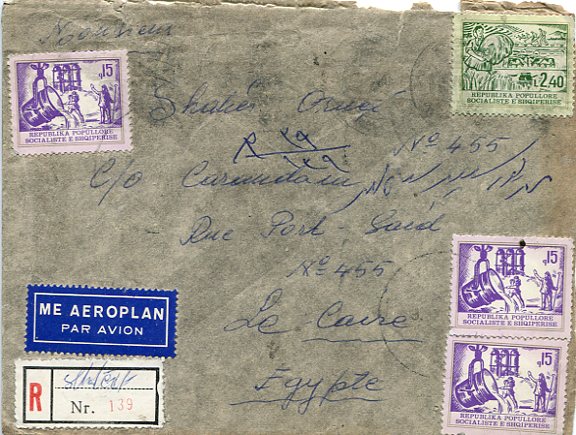 Monsieur
Shatir
Nº 455
C/o
Rue Port-Said
Nº 455
Le Caire
Egypte
15
REPUBLIKA POPULLORE
SOCIALISTE E SHQIPERISE
2,40
REPUBLIKA POPULLORE
SOCIALISTE E SHQIPERISE
ME AEROPLAN
PAR AVION
R
Nr. 139
15
REPUBLIKA POPULLORE
SOCIALISTE E SHQIPERISE
15
REPUBLIKA POPULLORE
SOCIALISTE E SHQIPERISE